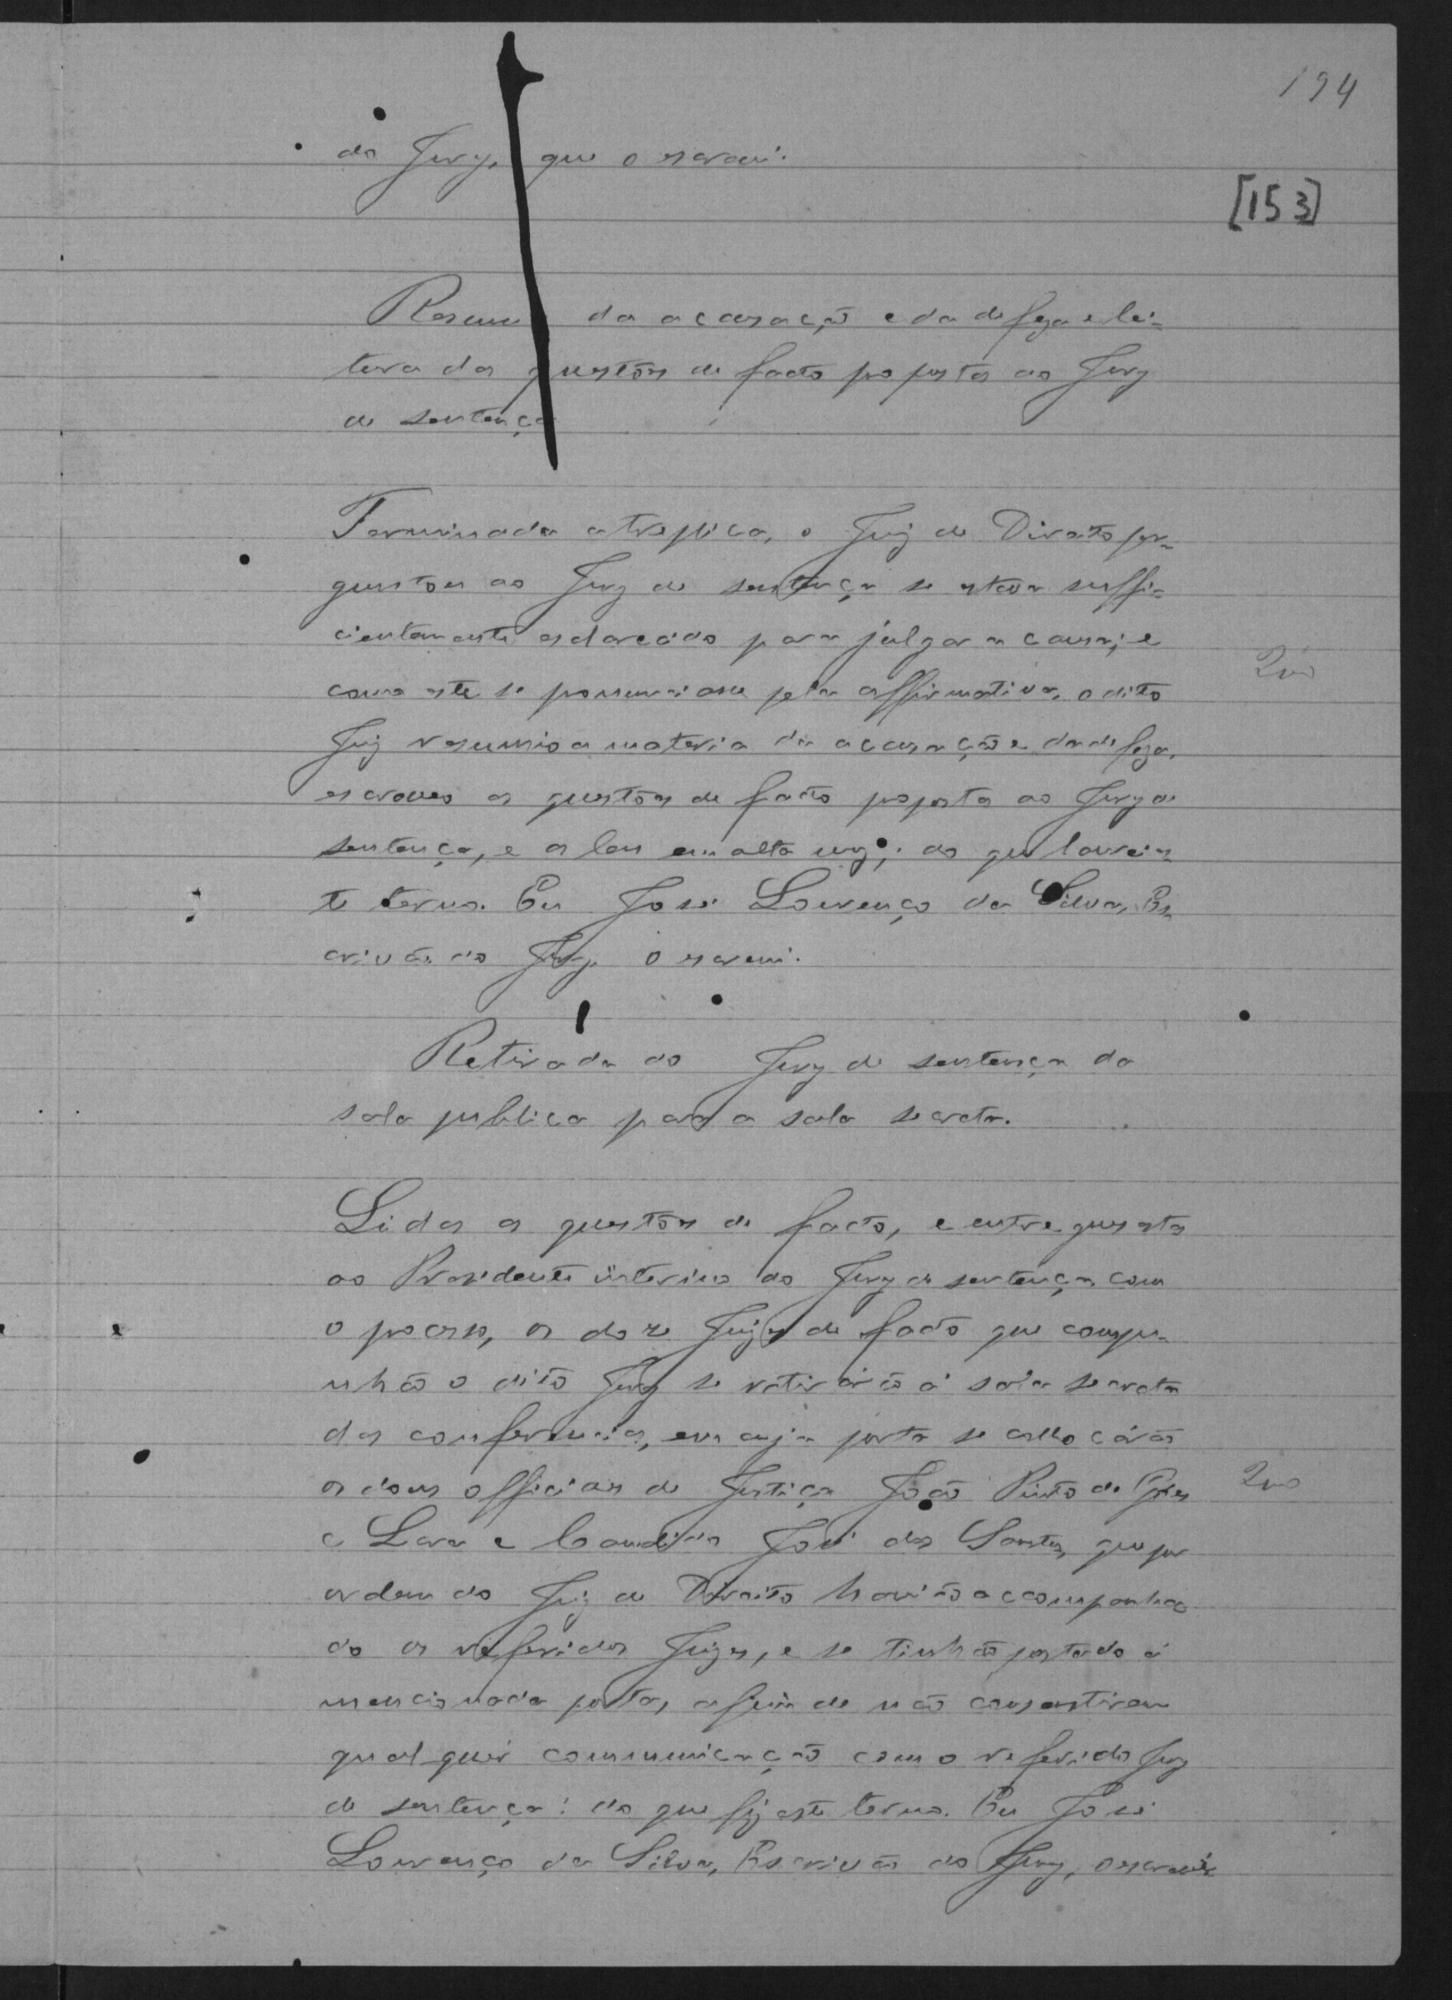 194
do Jury, que o escrevi.
[153]
Resumo da accusação e da defeza e lei-
tura das questões de facto propostas ao Jury
de sentença
Terminada a treplica, o Juiz de Direito per-
guntou ao Jury de sentença se estava suffi-
cientemente esclarecido para julgar a causa; e
como este se pronunciasse pela affirmativa, o dito
Juiz resumio a materia da accusação e da defeza,
escreveo as questões de facto propostas ao Jury de
sentença, e as leu em alta voz; do que lavrei es-
te termo. Eu José Lourenço da Silva, Es-
crivão do Jury o escrevi.
Retirada do Jury de sentença da
sala publica para a sala secreta.
Lidas as questões de facto, e entregues estas
ao Presidente interino do Jury de sentença com
o processo, os doze Juizes de facto que compu-
nhão o dito Jury se retirárão á sala secreta
das conferencias, em cuja porta se collocárão
os dous officiaes de Justiça João Pinto de Góes
e Lara e Candido José dos Santos, que por
ordem do Juiz de Direito havião acompanha-
do os referidos Juizes, e se tinhão postado á
mencionada porta, a fim de não consentirem
qualquer communicação com o referido Jury
de sentença: do que fiz este termo. Eu José
Lourenço da Silva, Escrivão do Jury, o escrevi